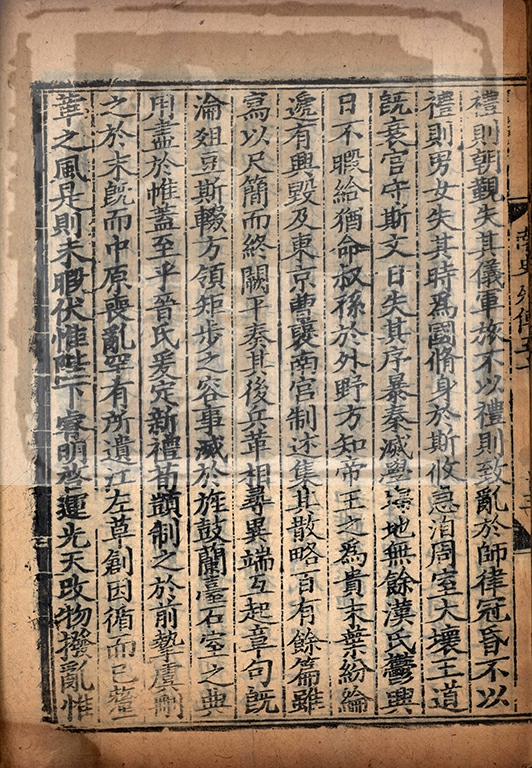 禮則朝觀失其儀軍旅不以禮則致亂於師律冠昏不以
禮則男女失其時爲國脩身於斯攸急洎周室大壞王道
旣衰官守斯文日失其序暴秦滅學掃地無餘漢氏鬱興
日不暇給猶命叔孫於外野方知帝王之爲貴末葉紛綸
遞有興毀及東京曹襃南宮制述集其散略百有餘篇雖
寫以尺簡而終闕平奏其後兵革相尋異端互起章句旣
淪俎豆斯輟方領矩步之容事滅於旌鼓蘭臺石室之典
用盡於帷蓋至乎晉氏爰定新禮荀顗制之於前摯虞刪
之於末旣而中原喪亂罕有所遺江左草創因循而已釐
革之風是則未暇伏惟陛下睿明啓運光天改物撥亂惟